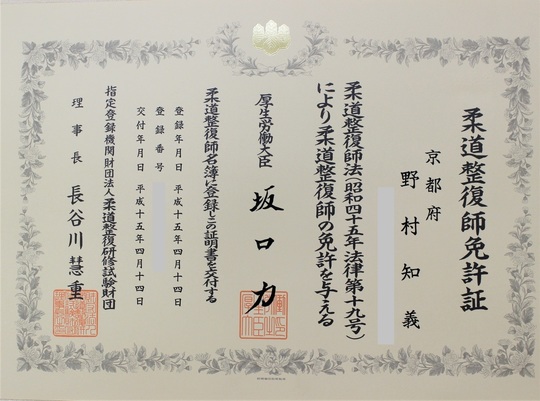 柔道整復師免許証
京都府
野村知義
柔道整復師法(昭和四十五年法律第十九号)
により柔道整復師の免許を与える
厚生労働大臣 坂口力
柔道整復師名簿に登録しこの証明書を交付する
登録年月日 平成十五年四月十四日
登録番号
交付年月日 平成十五年四月十四日
指定登録機関財団法人柔道整復研修試験財団
理事長 長谷川慧重